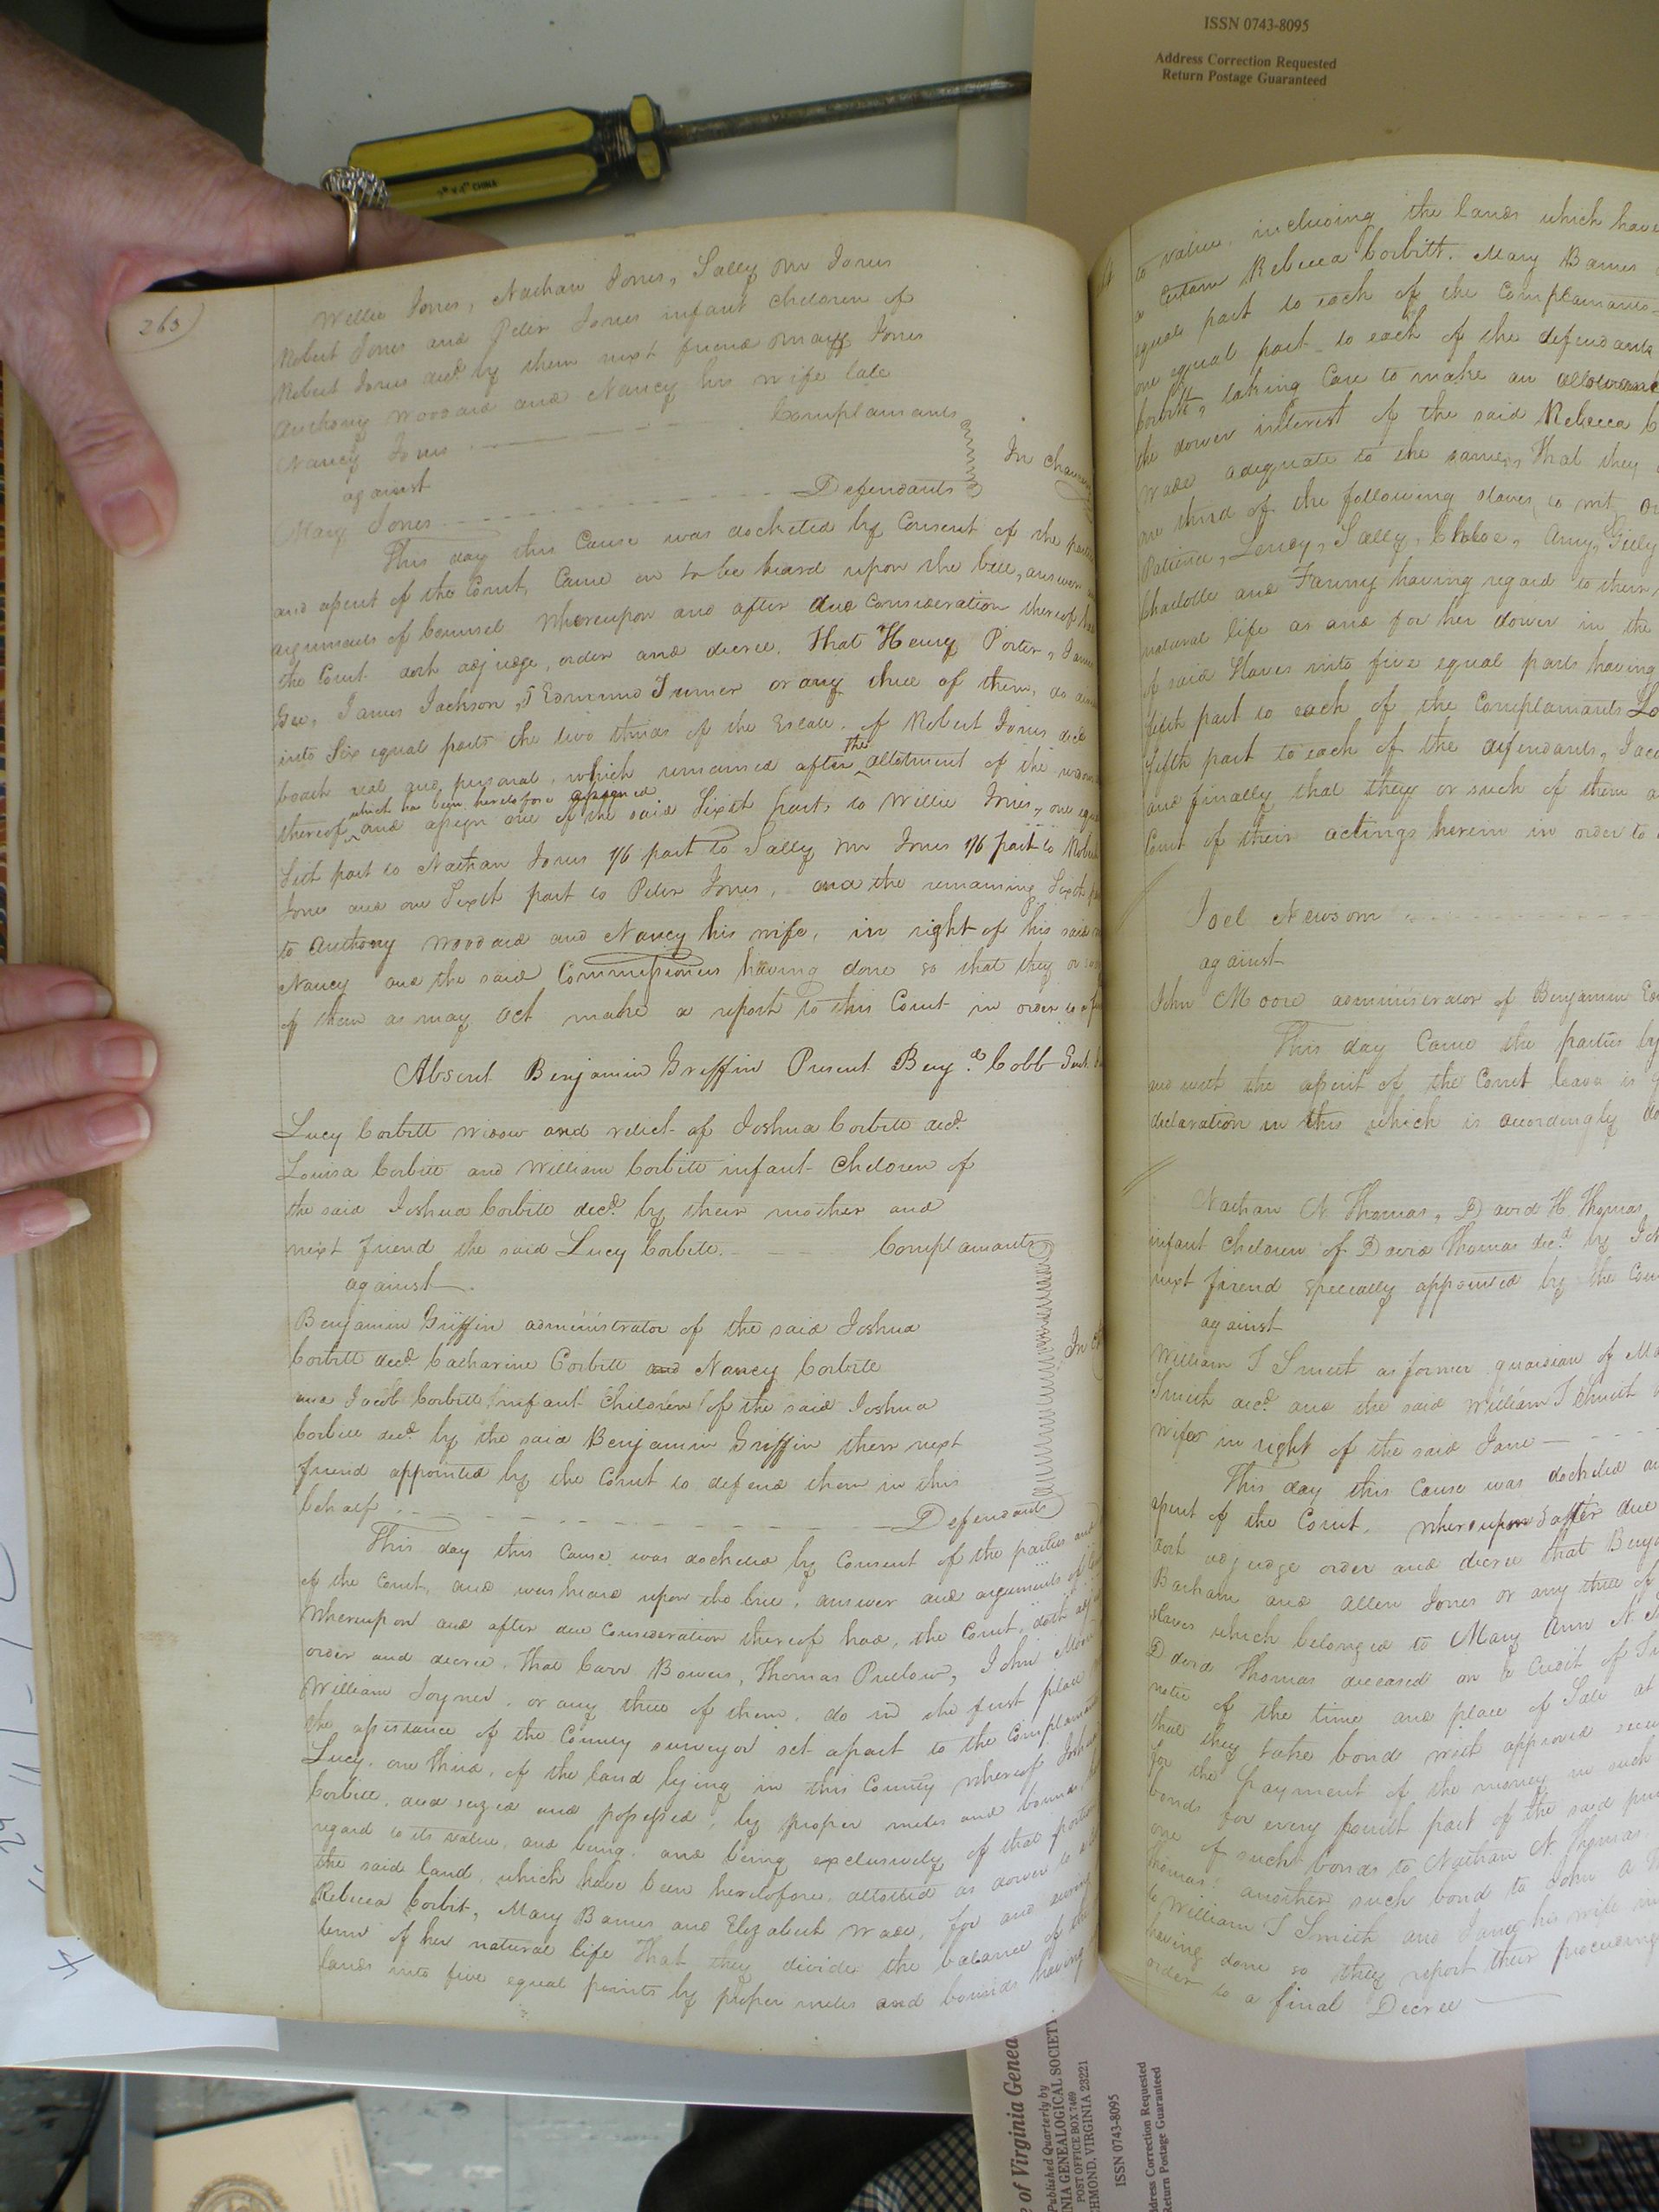 ISSN 0743-8095
Address Correction Requested
Return Postage Guaranteed
CHINA
263
Willie Jones, Nathan Jones, Sally M Jones
Robert Jones and Peter Jones infant children of
Robert Jones decd by them next friend Mary Jones
Anthony Woodard and Nancy his wife late
Nancy Jones Complainants
against
In
Mary Jones Defendants
This day this Cause was docketed by Consent of the
and assent of the Court, Came on to be heard upon the bill, answer
arguments of Counsel Whereupon and after due Consideration thereof
the Court doth adjudge, order and decree, That Henry Porter,
Gee, James Jackson, Edmund Turner or any three of them, do
into Six equal parts the two thirds of the Estate of Robert Jones decd
boath real and personal, which remained after the allotment of the
thereof which has been heretofore assigned and assign one of the said Sixth parts to Willie Jones, one
Sixth part to Nathan Jones 1/6 part to Sally M Jones 1/6 part to
Jones and one Sixth part to Peter Jones, and the remaining Sixth
to Anthony Woodard and Nancy his wife, in right of his said
Nancy and the said Commissioners having done so that they or
of them as may act make a report to this Court in order to a
Absent Benjamin Griffin Present Benj. D Cobb Gent
Lucy Corbitt widow and relict of Joshua Corbitt decd.
Louisa Corbitt and William Corbitt infant Children of
the said Joshua Corbitt decd. by their mother and
next friend the said Lucy Corbitt. Complainants
against
Benjamin Griffin administrator of the said Joshua
Corbitt decd. Catharine Corbitt and Nancy Corbitt
In
and Jacob Corbitt infant Children of the said Joshua
Corbitt decd. by the said Benjamin Griffin their next
friend appointed by the Court to defend them in this
behalf. Defendants
This day this Cause was docketed by Consent of the parties and
of the Court, and was heard upon the bill, answer and arguments of
Whereupon and after due Consideration thereof had, the Court, doth
order and decree, That Carr Bowers, Thomas Pretlow, John
William Joyner, or any three of them, do in the first place
the assistance of the County surveyor set apart to the
Lucy, one third, of the land lying in this County whereof
Corbitt, and seized and possessed, by proper metes and
regard to its value, and being, and being exclusively of that
the said land, which have been heretofore allotted as dower to
Rebecca Corbit, Mary Barnes and Elizabeth Wade, for and during
term of her natural life That they divide the balance of the
lands into five equal points by proper metes and bounds having
to value including the lands which have
a Certain Rebecca Corbitt, Mary Barnes
equal part to each of the Complainants
one equal part to each of the defendants
Corbitt, taking Care to make an allowance
the dower interest of the said Rebecca
Wade adequate to the same, That they
one third of the following slaves, to wit,
Patience, Lency, Sally, Chloe, Amy, Gilly
Charlotte and Fanny having regard to their
natural life as and for her dower in the
of said Slaves into five equal parts having
fifth part to each of the Complainants
fifth part to each of the defendants,
and finally that they or such of them
Court of their actings herein in order to
Joel Newsom
against
John Moore administrator of Benjamin
This day Came the parties by
and with the assent of the Court leave is
declaration in this which is accordingly
Nathan N. Thomas, David H. Thomas
infant Children of David Thomas decd. by
next friend specially appointed by the
against
William T Smith as former guardian of
Smith decd. and the said William T Smith
wife in right of the said Jane
This day this Cause was docketed
assent of the Court. Whereupon & after due
doth adjudge order and decree that
Barham and Allen Jones or any three of
slaves which belonged to Mary Ann N.
David Thomas deceased on a Credit of
notice of the time and place of Sale at
that they take bond with approved
for the payment of the money in such
bonds for every fourth part of the said
one of such bonds to Nathan N. Thomas
Thomas, another such bond to John A
to William T Smith and Jane his wife in
having done so they report their proceedings
order to a final Decree
of Virginia
Published Quarterly by
GENEALOGICAL SOCIETY
POST OFFICE BOX 7469
RICHMOND, VIRGINIA 23221
ISSN 0743-8095
Address Correction Requested
Return Postage Guaranteed